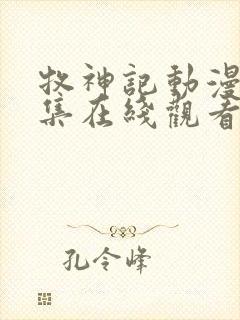 牧神記動漫
集在綫觀看
孔令峰